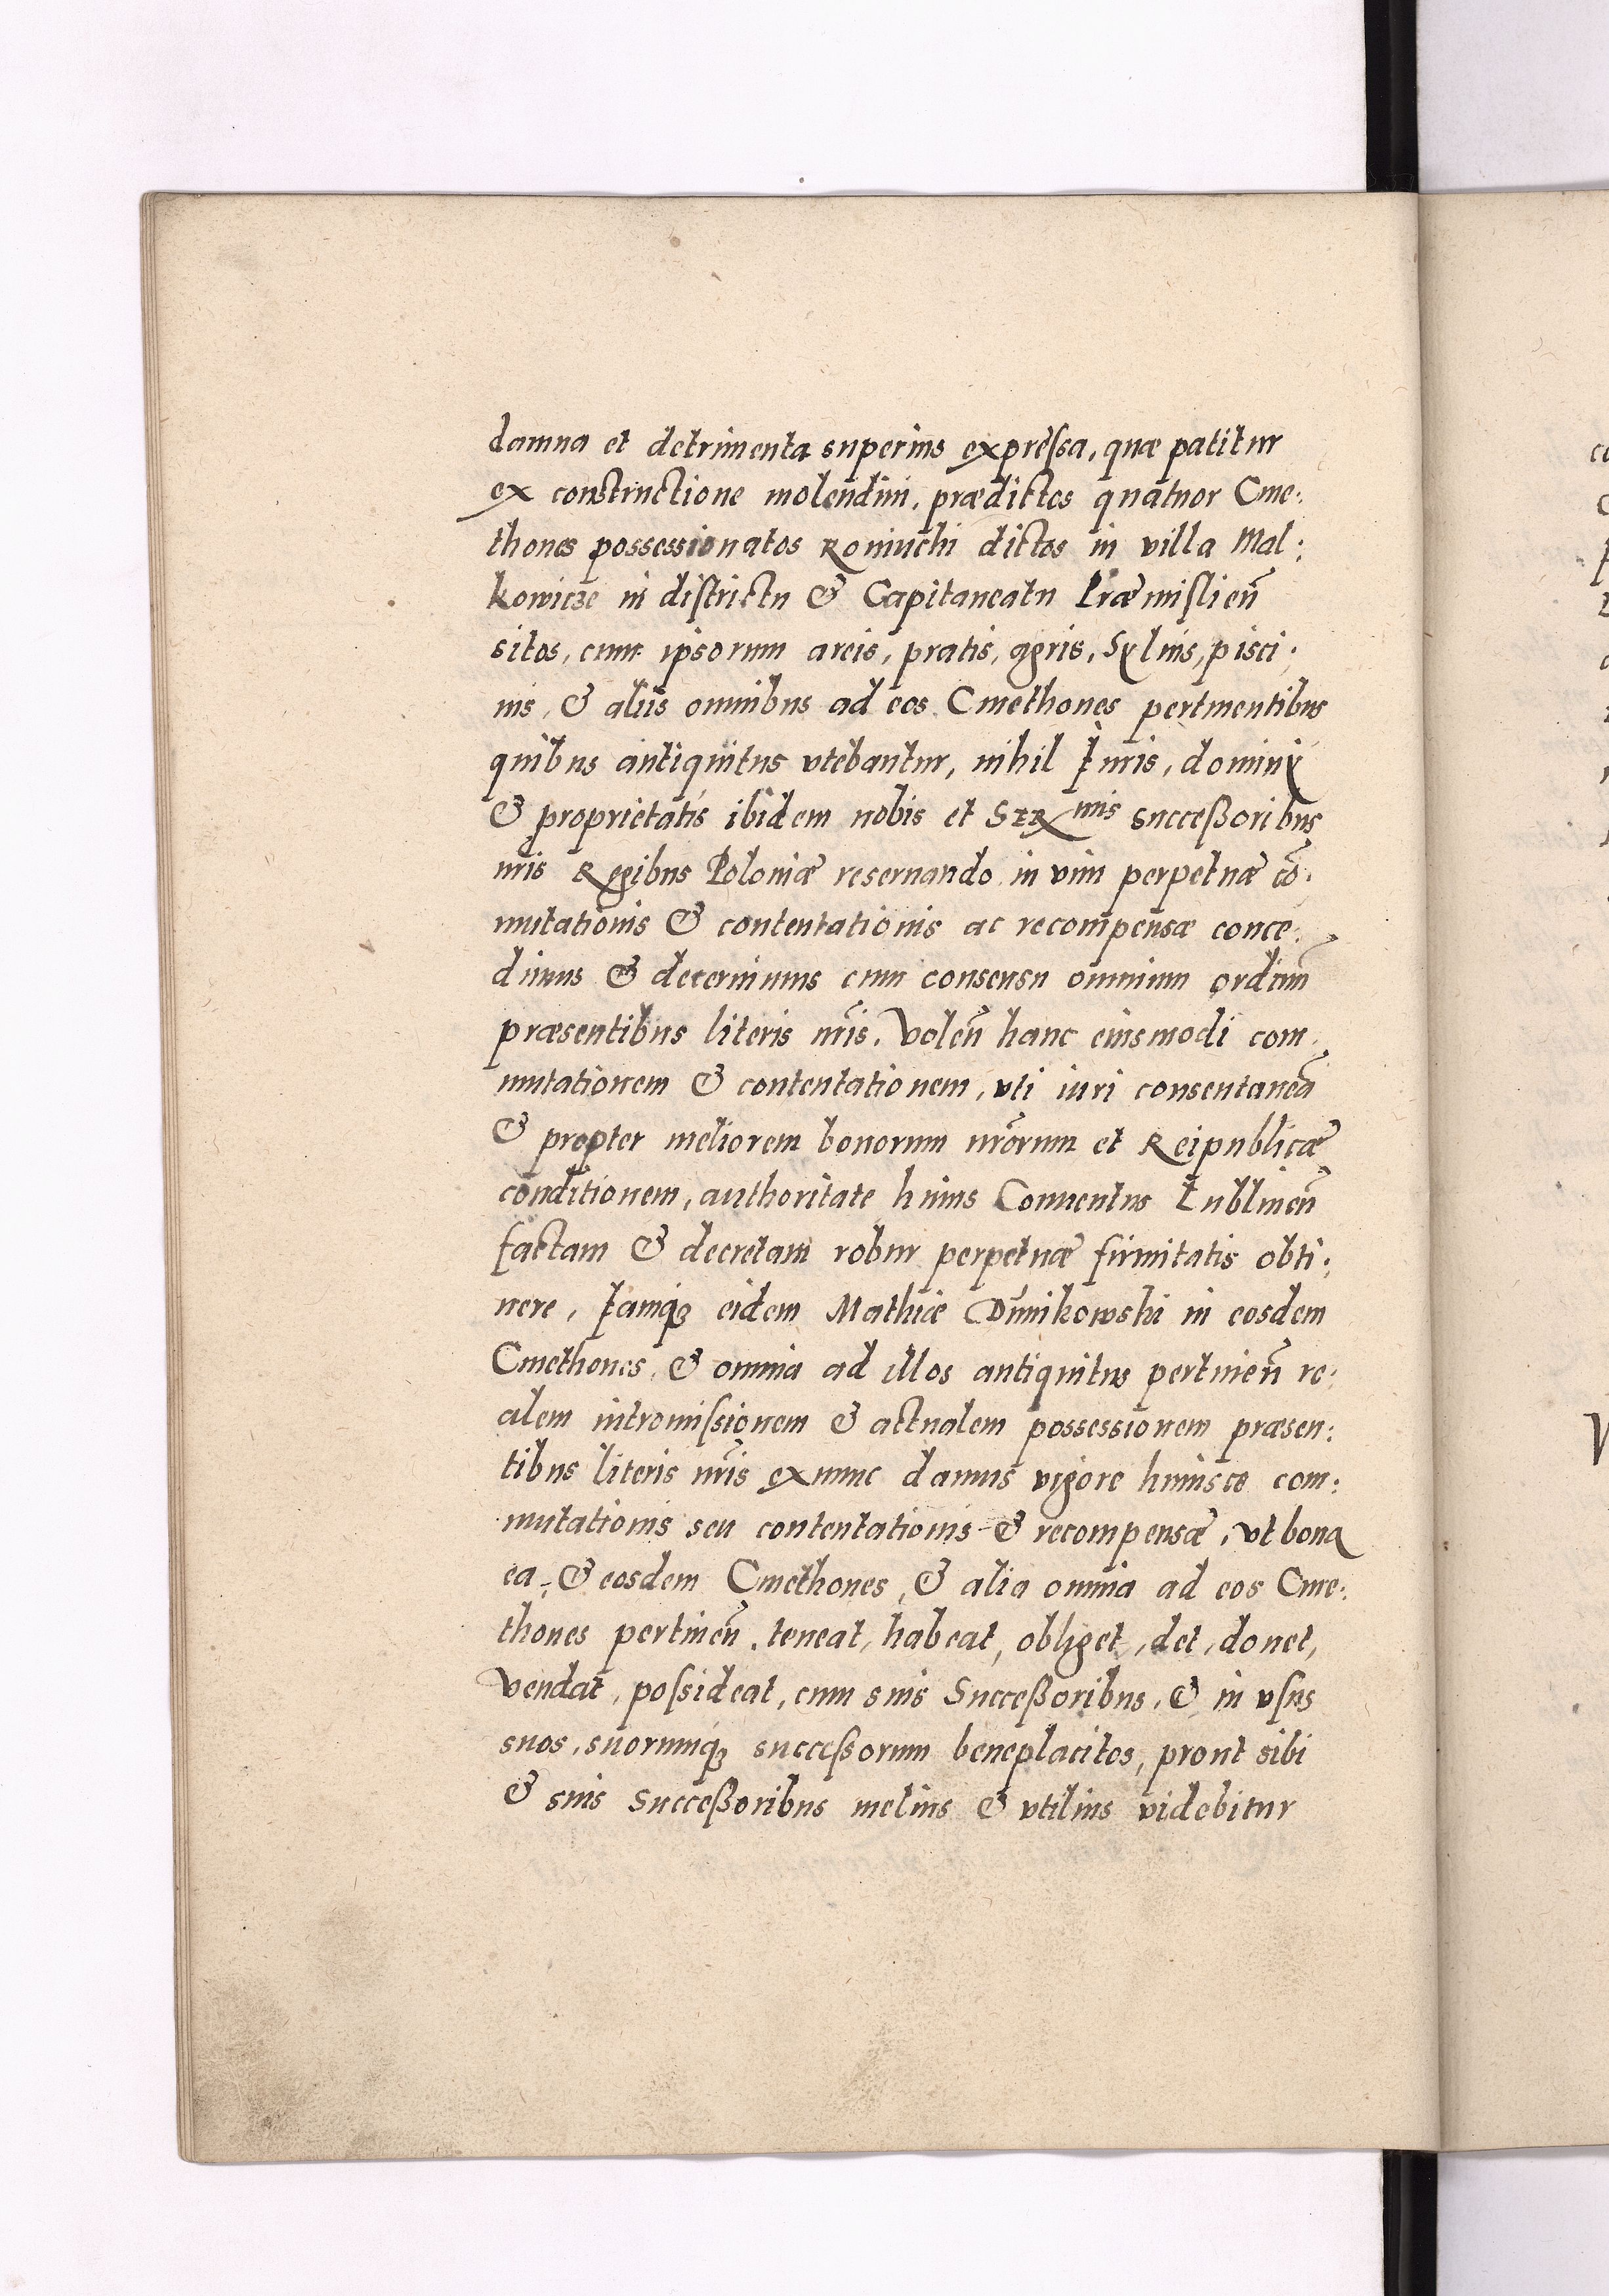 damna et detrimenta superius expressa, quæ patitur
ex constructione molendini, prædictos quatuor Cme:
thones possessionatos Romuchi dictos in villa Mal:
kowicze in districtu & Capitaneatu Præmislien̄
sitos, cum ipsorum areis, pratis, agris, Syluis, pisci:
nis, & aliis omnibus ad eos Cmethones pertinentibus
quibus antiquitus vtebantur, nihil Iuris, dominij
& proprietatis ibidem nobis et Ser mis Succeßoribus
nr̄is Regibus Poloniæ reseruando in vim perpetuæ cō:
mutationis & contentationis ac recompensæ conce:
dimus & decernimus cum consensu omnium ordinū
præsentibus literis nr̄is. Volen̄ hanc eiusmodi com
mutationem & contentationem, vti iuri consentaneā
& propter meliorem bonorum nr̄orum et Reipublicæ
conditionem, authoritate huius Conuentus Lublinen̄
factam & decretam robur perpetuæ firmitatis obti:
nere, Iamqꝫ eidem Mathiæ Dunikowski in eosdem
Cmethones, & omnia ad illos antiquitus pertinen̄ re:
alem intromissionem & actualem possessionem præsen:
tibus literis nr̄is ex nunc damus vigore huiusce com:
mutationis seu contentationis & recompensæ, vt bona
ea, & eosdem Cmethones, & alia omnia ad eos Cme:
thones pertinen̄, teneat, habeat, obliget, det, donet,
vendat, possideat, cum suis Succeßoribus, & in vsus
suos, suorumqꝫ succeßorum beneplacitos, prout sibi
& suis Succeßoribus melius & vtilius videbitur